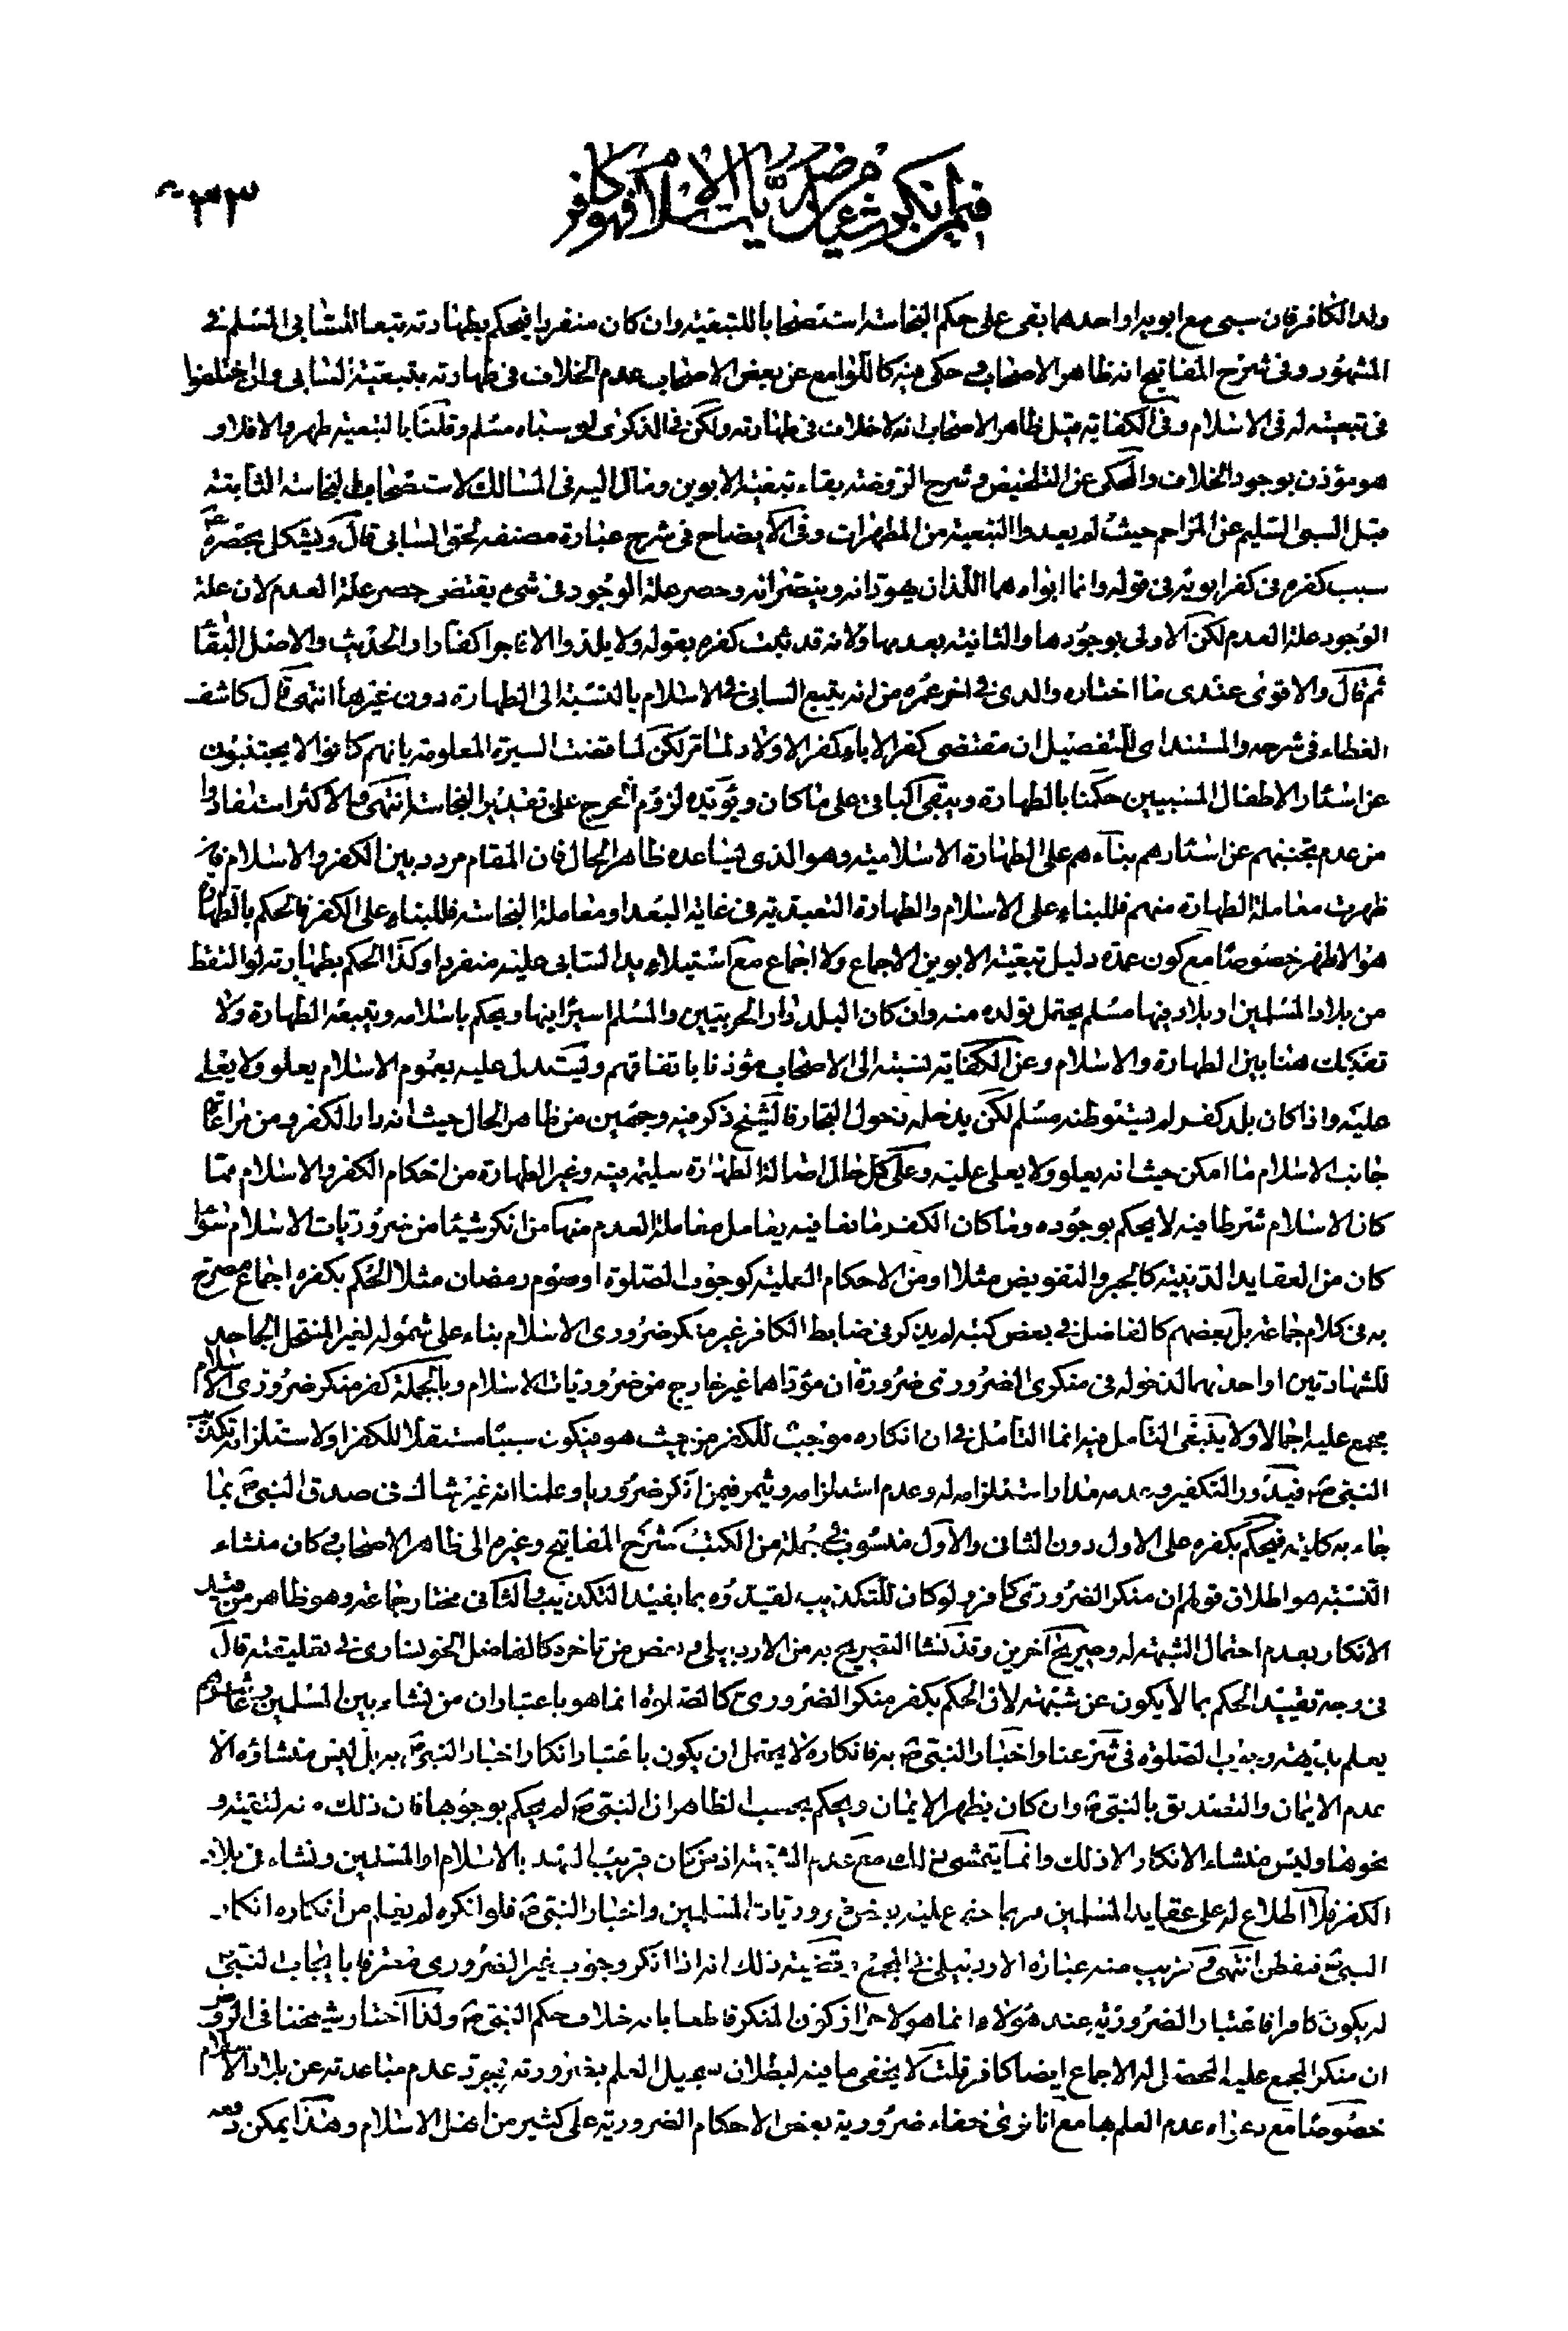 فيمن انكر شيئا من ضروريات الاسلام فهو كافر
٣٣
ولد الكافر فان سبى مع ابويه او احدهما بقى على حكم النجاسة استصحابا للتبعية وان كان منفردا فيحكم بطهارته تبعا للسابى المسلم فى
المشهور وفى شرح المفاتيح انه ظاهر الاصحاب وحكى فيه كاللوامع عن بعض الاصحاب عدم الخلاف فى طهارته بتبعية السابى وان اختلفوا
فى تبعيته له فى الاسلام وفى الكفاية قيل ظاهر الاصحاب انه لا خلاف فى طهارته ولكن فى الذكرى لو سباه مسلم وقلنا بالتبعية طهر والا فلا و
هو مؤذن بوجود الخلاف والمحكى عن التلخيص وشرح الروضة بقاء تبعية الابوين ومال اليه فى المسالك لاستصحاب النجاسة الثابتة
قبل السبى السليم عن المزاحم حيث لم يعدوا التبعية من المطهرات وفى الايضاح فى شرح عبارة مصنفه لحق السابى قال ويشكل بحصره ع
سبب كفره فى كفر ابويه فى قوله وانما ابواه هما اللذان يهودانه وينصرانه وحصر علة الوجود فى شىء يقتضى حصر علة العدم لان علة
الوجود علة العدم لكن الاولى بوجودها والثانية بعدمها ولانه قد ثبت كفره بقوله ولا يلدوا الا فاجرا كفارا والحديث والاصل البقاء
ثم قال والاقوى عندى ما اختاره والدى فى اخر عمره من انه يتبع السابى فى الاسلام بالنسبة الى الطهارة دون غيرها انتهى قال كاشف
الغطاء فى شرحه والمستند اى للتفصيل ان مقتضى كفر الاباء كفر الاولاد لما مر لكن لما قضت السيرة المعلومة بانهم كانوا لا يجتنبون
عن اسئار الاطفال المسبيين حكمنا بالطهارة ويبقى الباقى على ما كان ويؤيده لزوم الحرج على تقدير النجاسة انتهى والاكثر استفادوا
من عدم تجنبهم عن اسئارهم بناءهم على الطهارة الاسلامية وهو الذى يساعده ظاهر الحال فان المقام مردد بين الكفر والاسلام فان
ظهرت معاملة الطهارة منهم فللبناء على الاسلام والطهارة التعبدية فى غاية البعد او معاملة النجاسة فللبناء على الكفر فالحكم بالطهارة
هو الاظهر خصوصا مع كون عمدة دليل تبعية الابوين الاجماع ولا اجماع مع استيلاء يد السابى عليه منفردا وكذا الحكم بطهارته لو التقط
من بلاد المسلمين او بلاد فيها مسلم يحتمل تولده منه وان كان البلد دار الحربيين والمسلم اسيرا فيها ويحكم باسلامه ويتبعه الطهارة ولا
تفكيك هنا بين الطهارة والاسلام وعن الكفاية نسبته الى الاصحاب مؤذنا باتفاقهم ويستدل عليه بعموم الاسلام يعلو ولا يعلى
عليه واذا كان بلد كفر لم يستوطنه مسلم لكن يدخله نحو التجار فالشيخ ذكر فيه وجهين من ظاهر الحال حيث انه دار الكفر ومن مراعاة
جانب الاسلام ما امكن حيث انه يعلو ولا يعلى عليه وعلى كل حال اصالة الطهارة سليمة فيه وغير الطهارة من احكام الكفر والاسلام مما
كان الاسلام شرطا فيه لا يحكم بوجوده وما كان الكفر مانعا فيه يعامل معاملة العدم منها من انكر شيئا من ضروريات الاسلام سواء
كان من العقايد الدينية كالجبر والتفويض مثلا او من الاحكام العملية كوجوب الصلوة او صوم رمضان مثلا الحكم بكفره اجماع مصرح
به فى كلام جماعة بل بعضهم كالفاضل فى بعض كتبه لم يذكر فى ضابط الكافر غير منكر ضرورى الاسلام بناء على شموله لغير المنتحل الجاحد
للشهادتين او احديهما لدخوله فى منكرى الضرورى ضرورة ان مؤداهما غير خارج من ضروريات الاسلام وبالجملة كفر منكر ضرورى الاسلام
مجمع عليه اجمالا ولا ينبغى التامل فيه انما التامل فى ان انكاره موجب للكفر من حيث هو فيكون سببا مستقلا للكفر او لاستلزامه تكذيب
النبى ص فيدور التكفير وعدمه مدار استلزامه له وعدم استلزامه ويثمر فيمن انكر ضروريا وعلمنا انه غير شاك فى صدق النبى ص بما
جاء به كلية فيحكم بكفره على الاول دون الثانى والاول منسوب فى جملة من الكتب كشرح المفاتيح وغيره الى ظاهر الاصحاب وكان منشاء
النسبة هو اطلاق قولهم ان منكر الضرورى كافر ولو كان للتكذيب لقيدوه بما يفيد التكذيب والثانى مختار جماعة وهو ظاهر من قيد
الانكار بعدم احتمال الشبهة له وصريح آخرين وقد نشا التصريح به من الاردبيلى وبعض من تاخره كالفاضل الخونسارى فى تعليقته قال
فى وجه تقييد الحكم بما لا يكون عن شبهة لان الحكم بكفر منكر الضرورى كالصلوة انما هو باعتبار ان من نشاء بين المسلمين وعاشرهم
يعلم بديهة وجوب الصلوة فى شرعنا واخبار النبى ص به فانكاره لا يحتمل ان يكون باعتبار انكار اخبار النبى ص به بل ليس منشاؤه الا
عدم الايمان والتصديق بالنبى ص وان كان يظهر الايمان ويحكم بحسب الظاهر ان النبى ص لم يحكم بوجوبها فان ذلك منه لتقية و
نحوها وليس منشاء الانكار الا ذلك وانما يتمشى ذلك مع عدم الشبهة اذ من كان قريب العهد بالاسلام او المسلمين ونشاء فى بلاد
الكفر فلا اطلاع له على عقايد المسلمين فربما خفى عليه بعض ضروريات المسلمين واخبار النبى ص فلو انكره لم يعلم من انكاره انكار
النبى ص فتفطن انتهى وقريب منه عبارة الاردبيلى فى المجمع وقضية ذلك انه اذا انكر وجوب غير الضرورى معترفا بايجاب النبى ص
له يكون كافرا فاعتبار الضرورية عند هؤلاء انما هو لاحراز كون المنكر قاطعا بانه خلاف حكم النبى ص ولذا اختار شيخنا فى الروض
ان منكر المجمع عليه المحصل له الاجماع ايضا كافر قلت لا يخفى ما فيه لبطلان سبيل العلم بضرورته بمجرد عدم مباعدته عن بلاد الاسلام
خصوصا مع دعواه عدم العلم بها مع انا نرى خفاء ضرورية بعض الاحكام الضرورية على كثير من اهل الاسلام وهذا يمكن دفعه